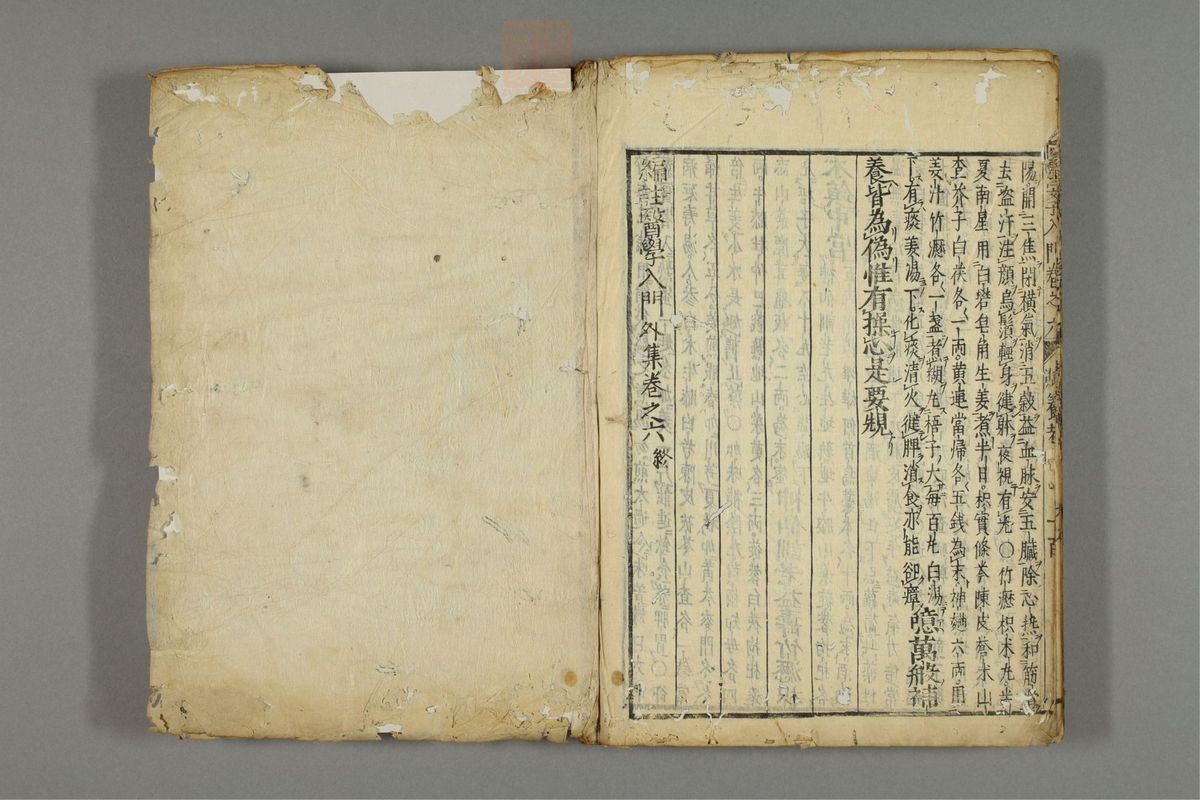 陽開三焦閉橫氣消五穀益血脉安五臟除心熱和筋
去盗汗注顔烏鬚輕身健躰夜視有光〇竹瀝枳朮丸半
夏南星用白礬皂角生姜煮半日枳實條芩陳皮蒼朮山
查芥子白茯各一兩黄連當帰各五錢為末神麯六兩用
姜汁竹瀝各一盞煮糊丸梧子大每百丸白湯
下有痰姜湯下化痰清火健脾消食亦能卻瘴噫萬般補
養皆為偽惟有操心是要規
編註醫學入門外集卷之六終
入門卷之六